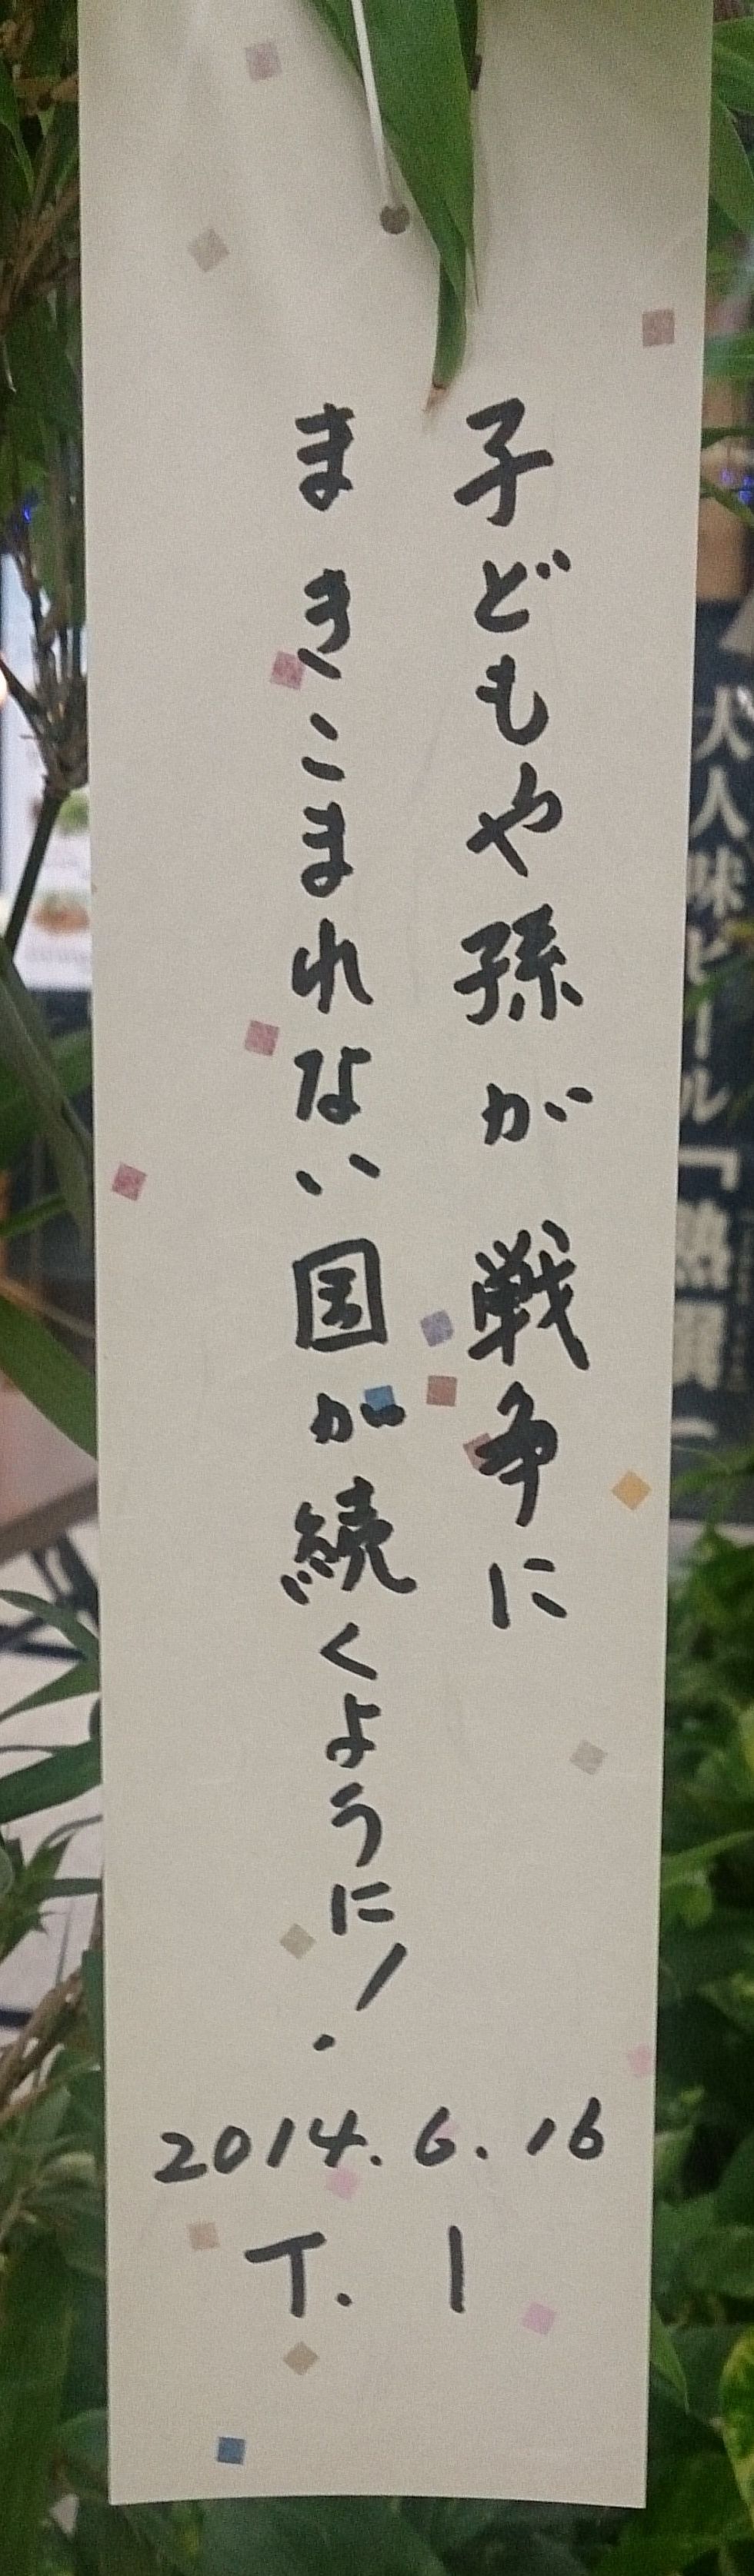 子どもや孫が戦争に
まきこまれない国が続くように!
2014.6.16
T. I
人味ビール「熱